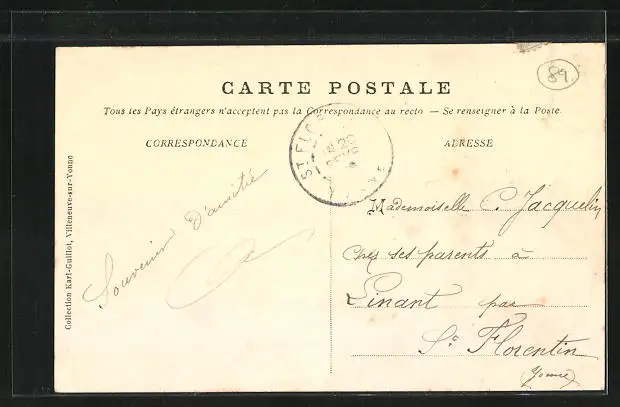 89
CARTE POSTALE
Tous les Pays étrangers n'acceptent pas la Correspondance au recto — Se renseigner à la Poste
CORRESPONDANCE
ADRESSE
ST FLO
Souvenir d'amitié
Mademoiselle C. Jacquelin
Chez ses parents à
Linant par
St Florentin
(Yonne)
Collection Karl-Guillot, Villeneuve-sur-Yonne